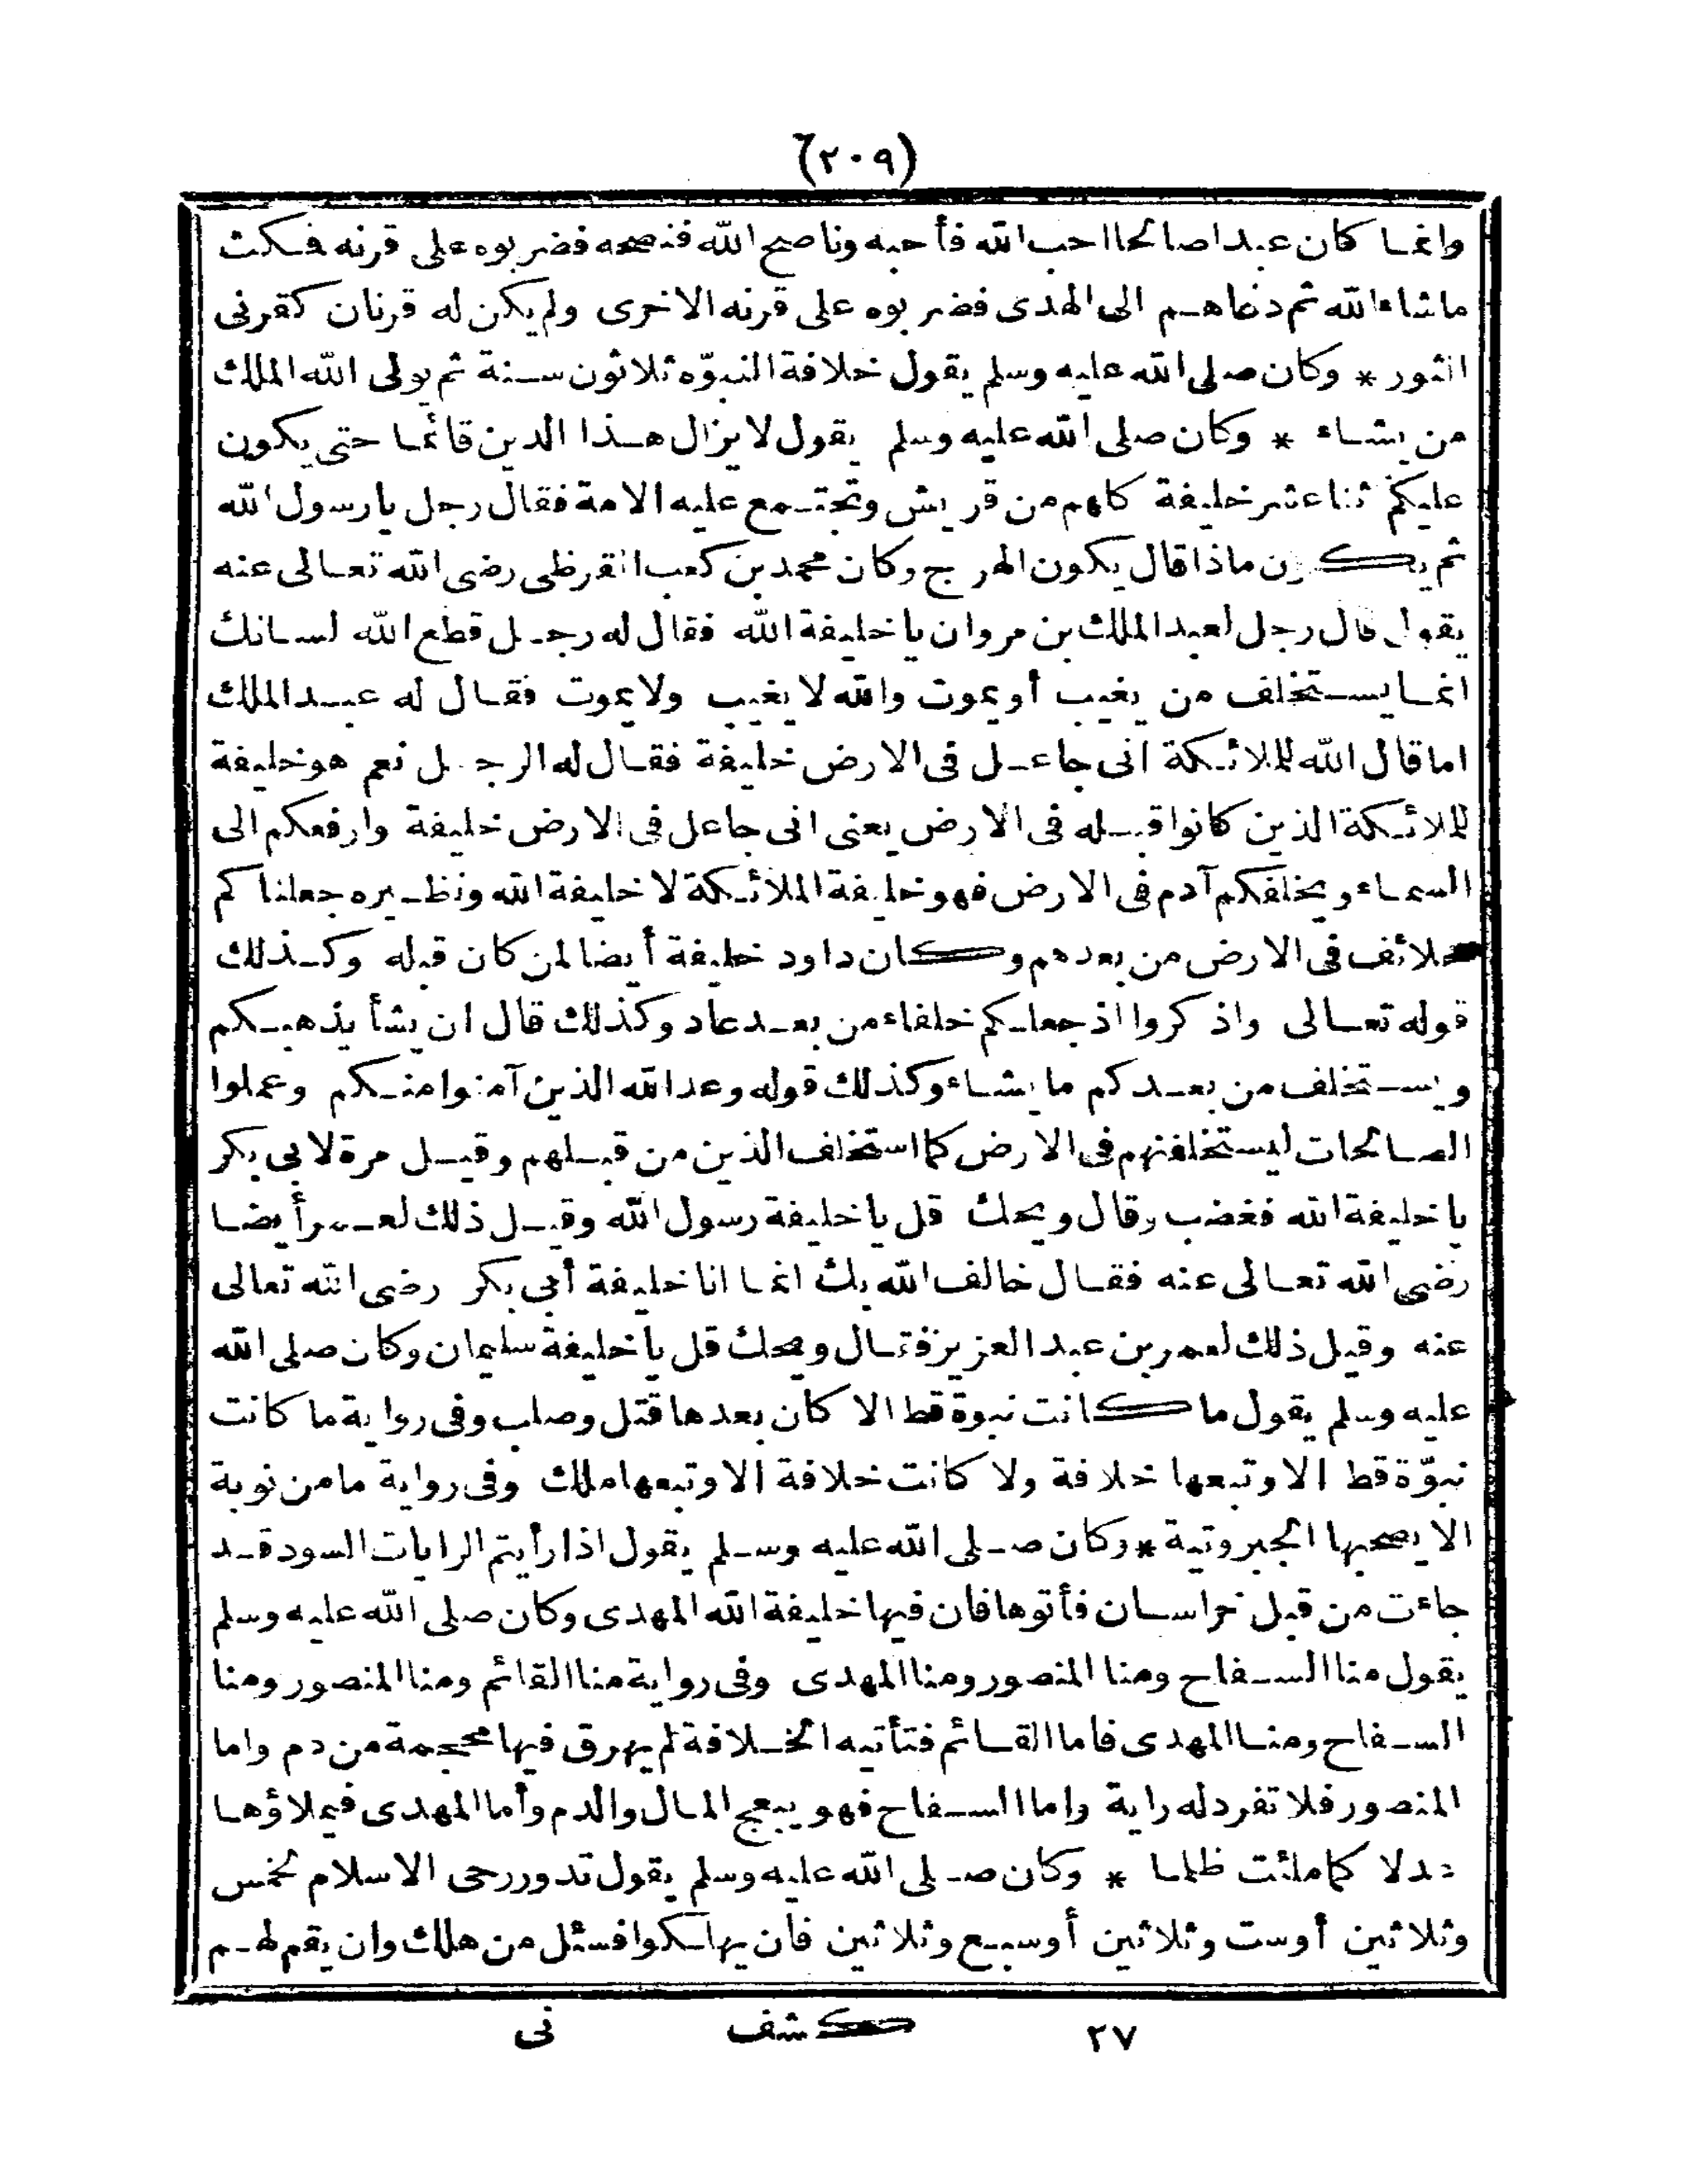 (٢٠٩)
وانما كان عبدا صالحا احب الله فأحبه وناصح الله فنصحه فضربوه على قرنه فمكث
ماشاء الله ثم دعاهم الى الهدى فضربوه على قرنه الاخرى ولم يكن له قرنان كقرنى
الثور * وكان صلى الله عليه وسلم يقول خلافة النبوّه ثلاثون سنة ثم يولى الله الملك
من يشاء * وكان صلى الله عليه وسلم يقول لا يزال هذا الدين قائما حتى يكون
عليكم اثنا عشر خليفة كلهم من قريش وتجتمع عليه الامة فقال رجل يا رسول الله
ثم يكون ماذا قال يكون الهرج وكان محمد بن كعب القرظى رضى الله تعالى عنه
يقول قال رجل لعبد الملك بن مروان يا خليفة الله فقال له رجل قطع الله لسانك
انما يستخلف من يغيب أو يموت والله لا يغيب ولا يموت فقال له عبد الملك
اما قال الله للملائكة انى جاعل فى الارض خليفة فقال له الرجل نعم هو خليفة
للملائكة الذين كانوا قبله فى الارض يعنى انى جاعل فى الارض خليفة وارفعكم الى
السماء ويخلفكم آدم فى الارض فهو خليفة الملائكة لا خليفة الله ونظيره جعلناكم
خلائف فى الارض من بعدهم وكان داود خليفة أيضا لمن كان قبله وكذلك
قوله تعالى واذكروا اذ جعلكم خلفاء من بعد عاد وكذلك قال ان يشأ يذهبكم
ويستخلف من بعدكم ما يشاء وكذلك قوله وعد الله الذين آمنوا منكم وعملوا
الصالحات ليستخلفنهم فى الارض كما استخلف الذين من قبلهم وقيل مرة لابى بكر
يا خليفة الله فغضب وقال ويحك قل يا خليفة رسول الله وقيل ذلك لعمر أيضا
رضى الله تعالى عنه فقال خالف الله بك انما انا خليفة أبى بكر رضى الله تعالى
عنه وقيل ذلك لعمر بن عبد العزيز فقال ويحك قل يا خليفة سليمان وكان صلى الله
عليه وسلم يقول ما كانت نبوة قط الا كان بعدها قتل وصلب وفى رواية ما كانت
نبوّة قط الا وتبعها خلافة ولا كانت خلافة الا وتبعها ملك وفى رواية مامن نوبة
الا يصحبها الجبروتية * وكان صلى الله عليه وسلم يقول اذا رأيتم الرايات السود قد
جاءت من قبل خراسان فأتوها فان فيها خليفة الله المهدى وكان صلى الله عليه وسلم
يقول منا السفاح ومنا المنصور ومنا المهدى وفى رواية منا القائم ومنا المنصور ومنا
السفاح ومنا المهدى فاما القائم فتأتيه الخلافة لم يهرق فيها محجمة من دم واما
المنصور فلا تفرد له راية واما السفاح فهو يبعج المال والدم وأما المهدى فيملاؤها
عدلا كما ملئت ظلما * وكان صلى الله عليه وسلم يقول تدور رحى الاسلام لخمس
وثلاثين أوست وثلاثين أوسبع وثلاثين فان يهلكوا فسئل من هلك وان يقم لهم
٢٧ كشف نى